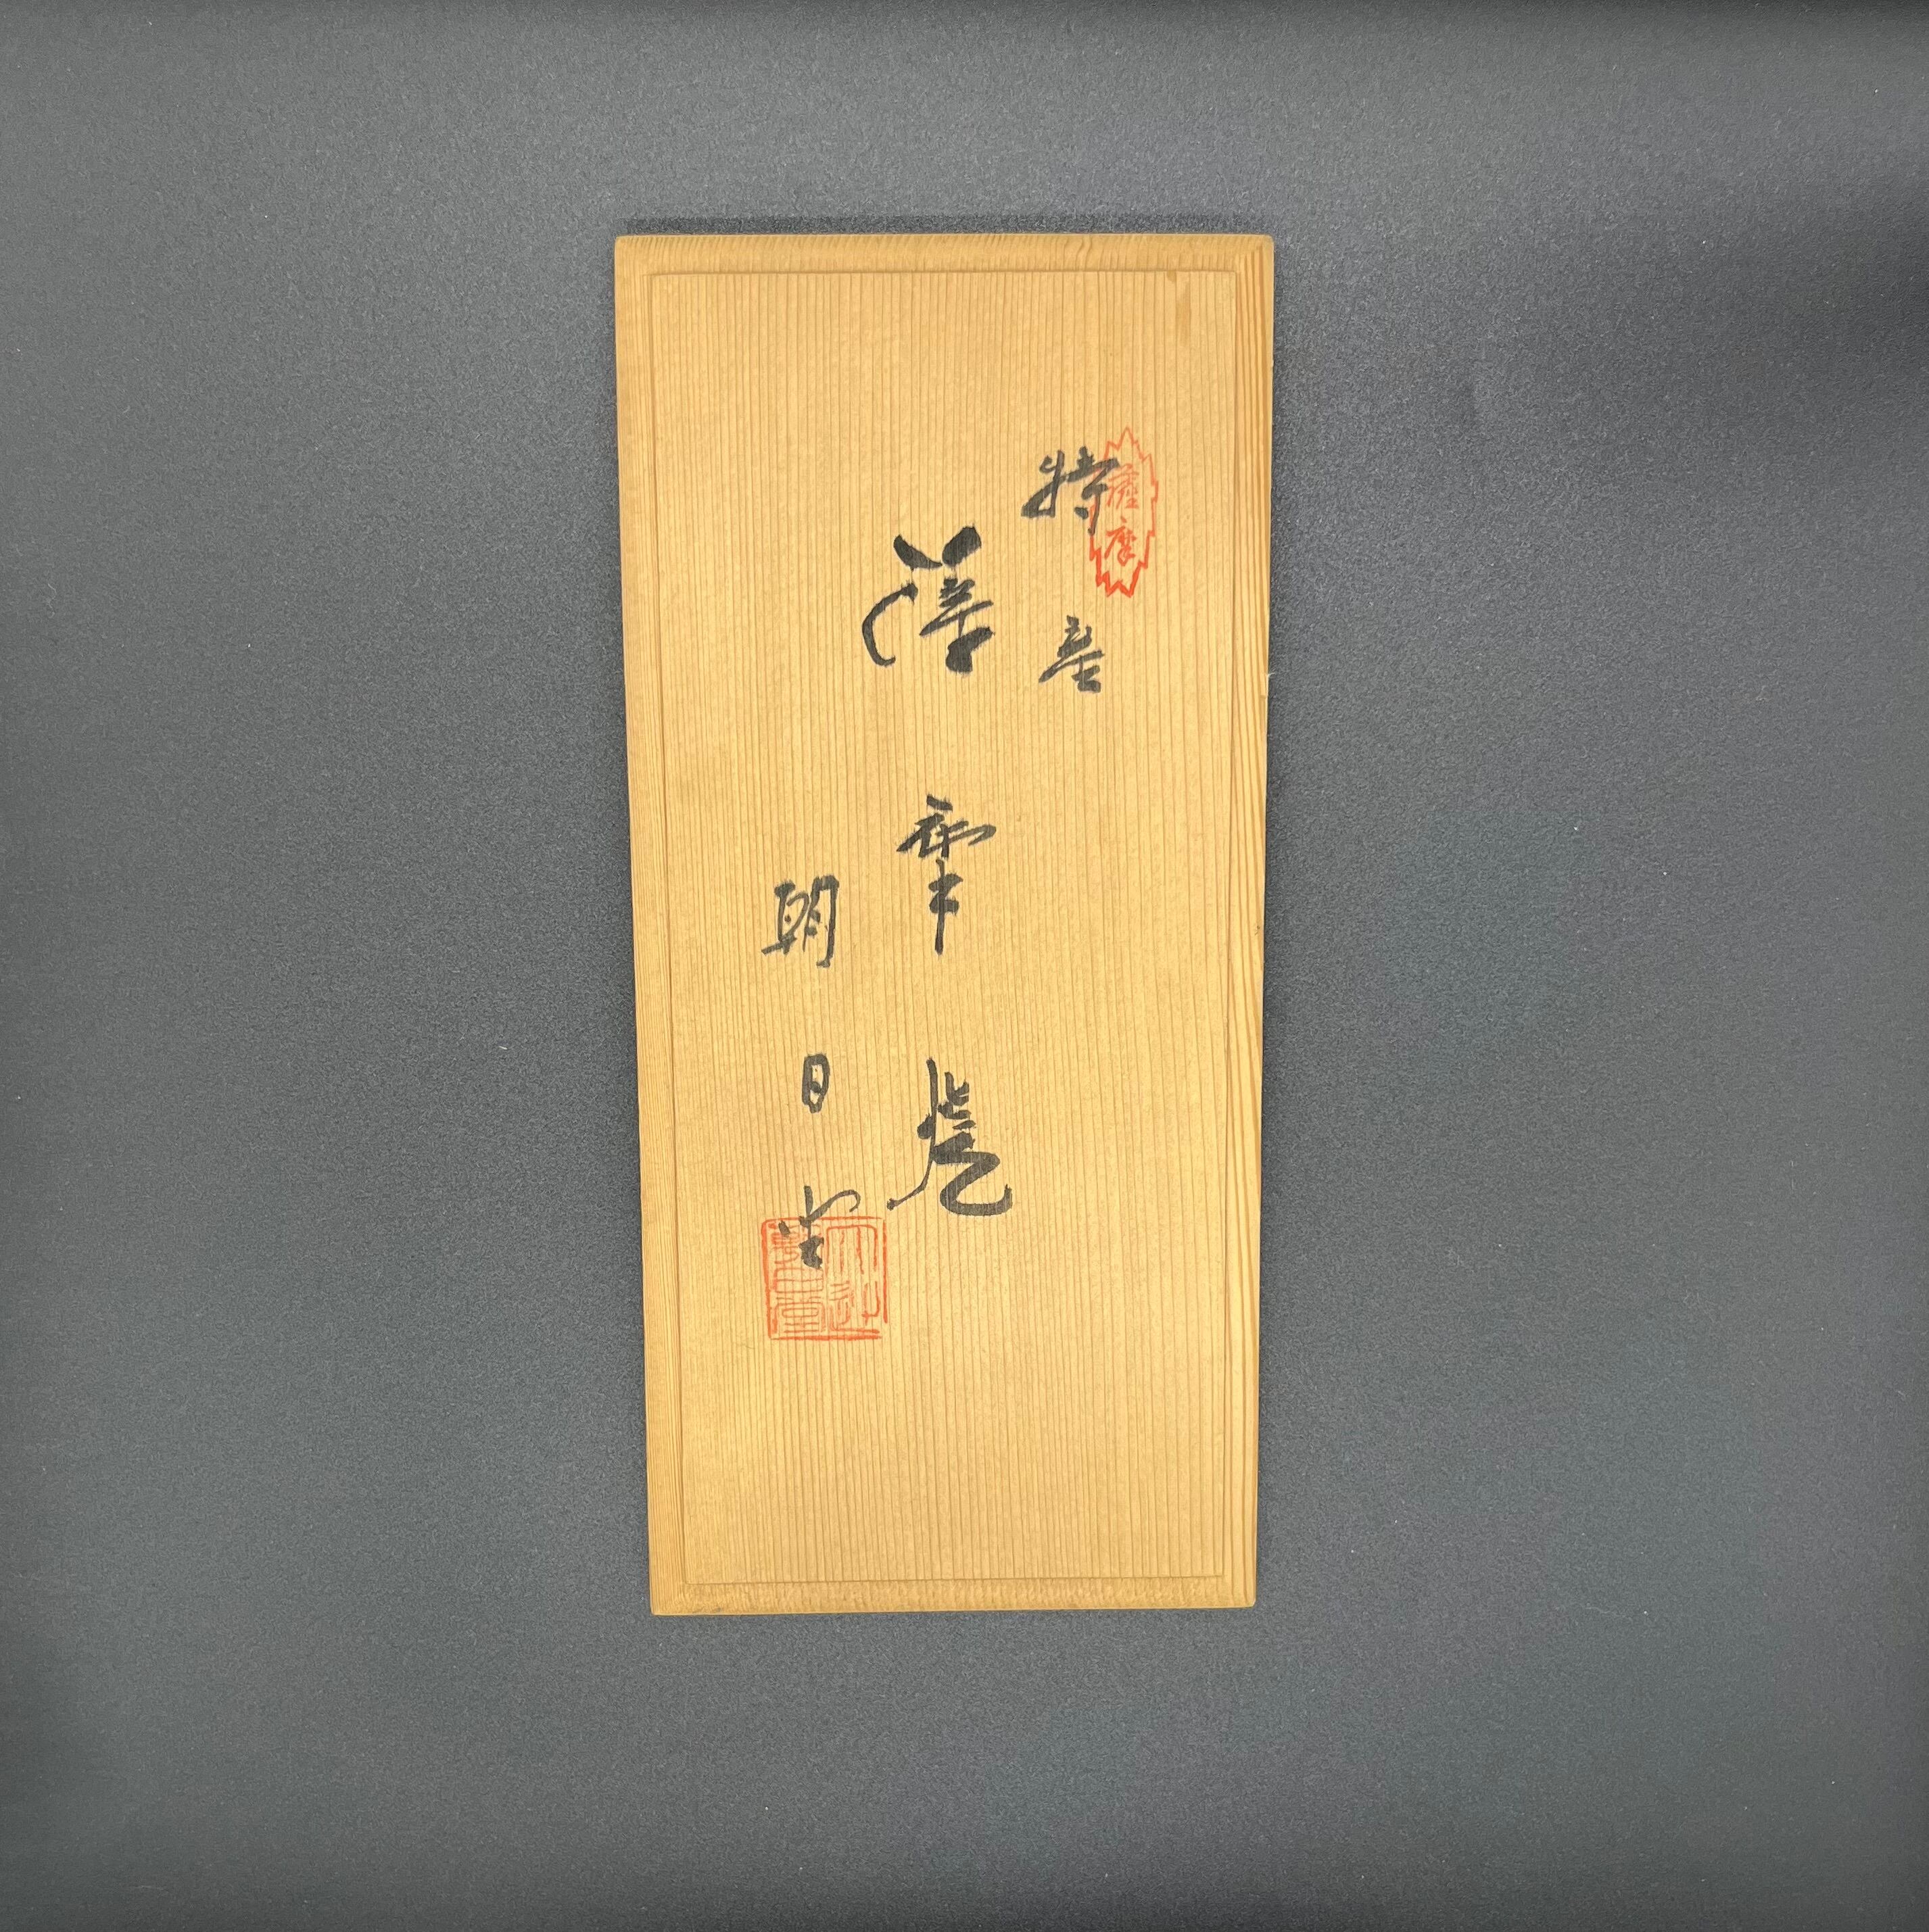 薩摩
特産
薩摩焼
朝日堂